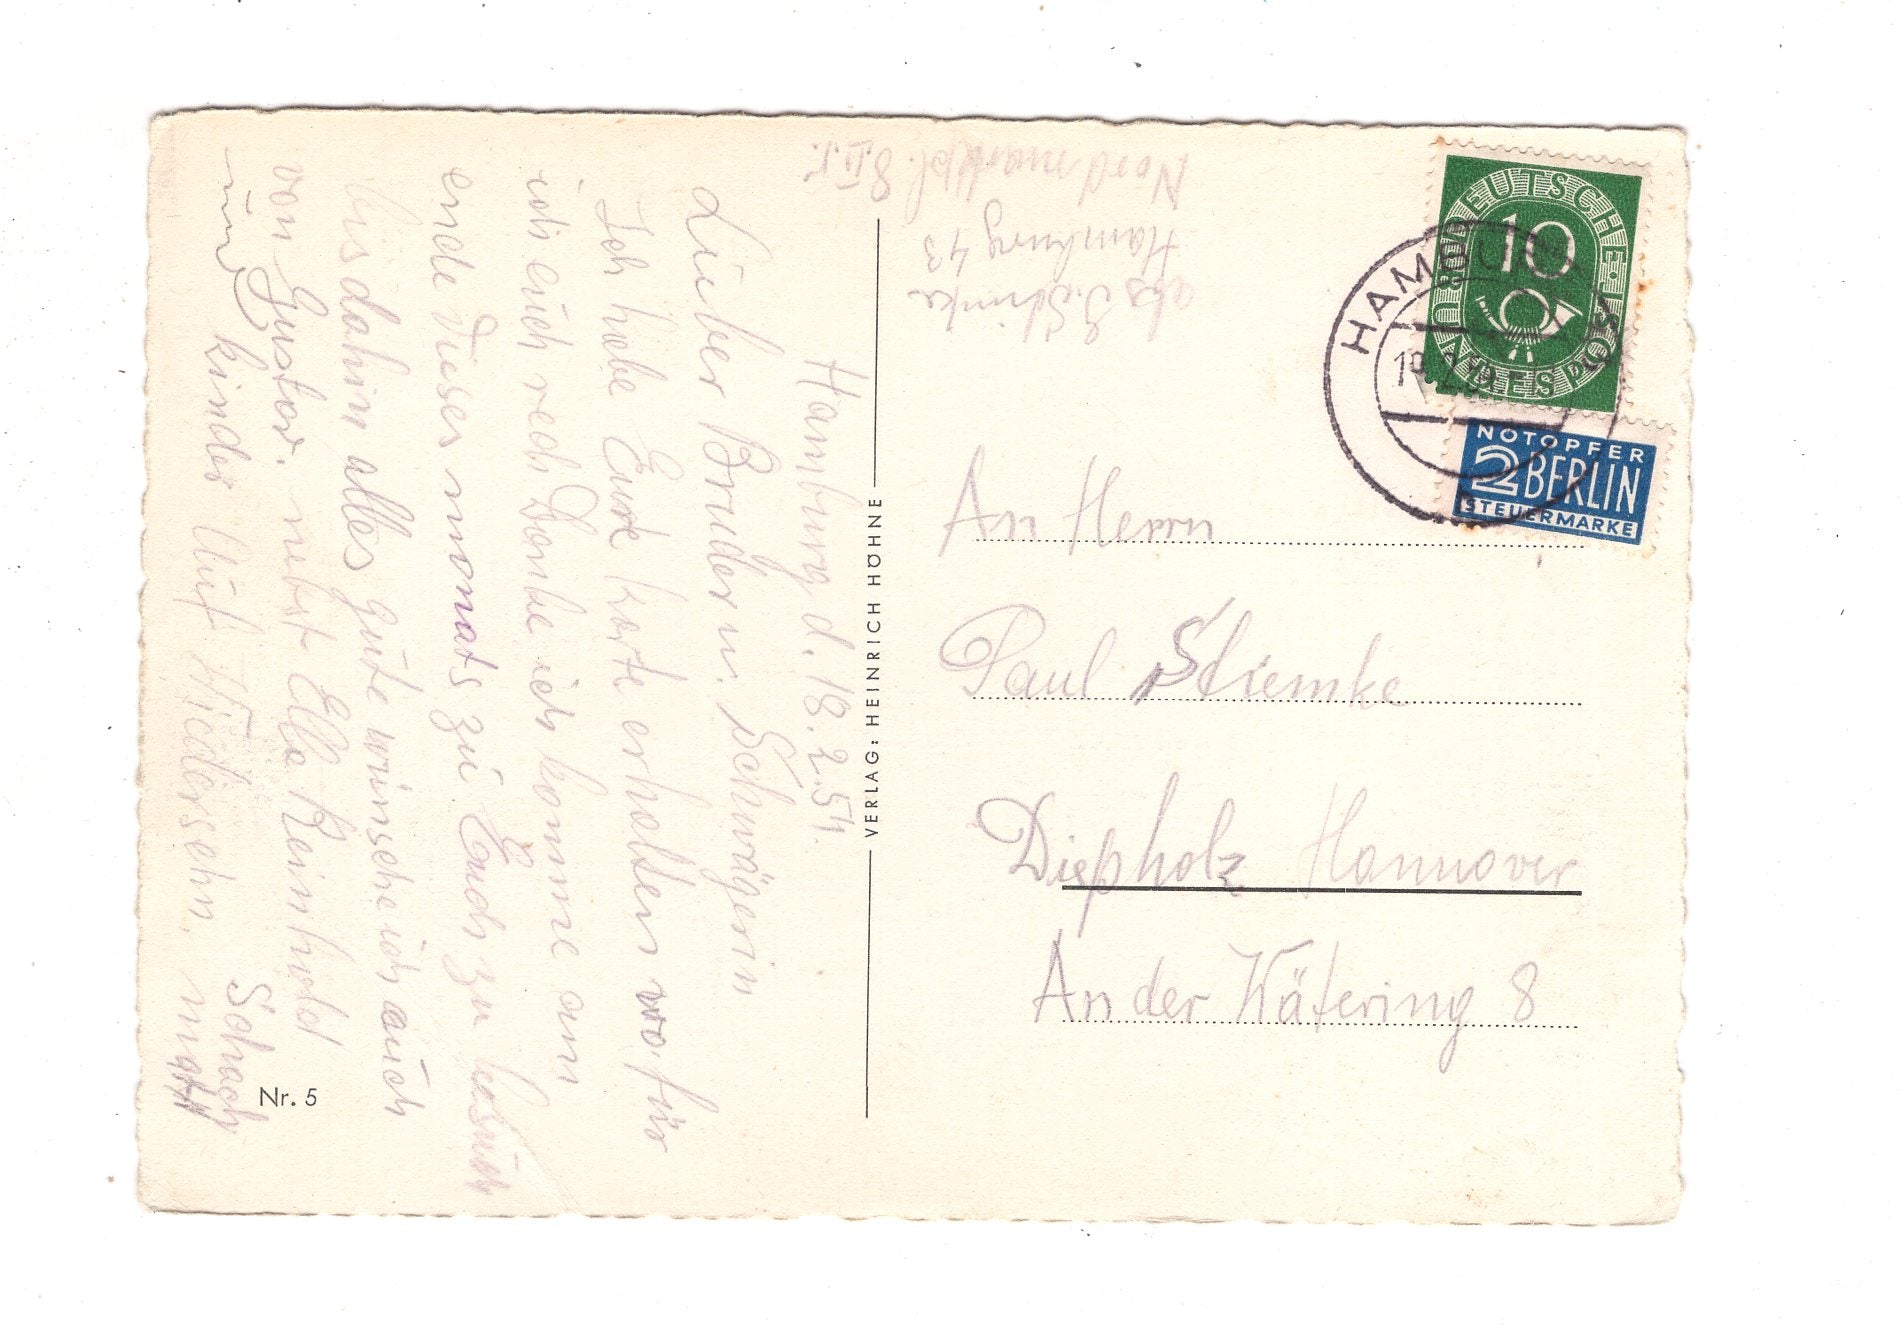 Hamburg d. 18.2.54.
Lieber Bruder u. Schwägerin
Ich habe Eure karte erhalten wo für
ich euch rech Danke ich komme am
ende dieser monats zu Euch zu besuch
bis dahin alles gute wünsche ich auch
von Gustav. nebst Ella Reinhold
und kinder Auf Wiedersehn.
Nr. 5
VERLAG: HEINRICH HÖHNE
Hamburg 43
Nordmarkpl. 8.II.r.
DEUTSCHE BUNDESPOST
10
HAMBURG
NOTOPFER
2 BERLIN
STEUERMARKE
An Herrn
Paul Stiemke
Diepholz Hannover
An der Wätering 8